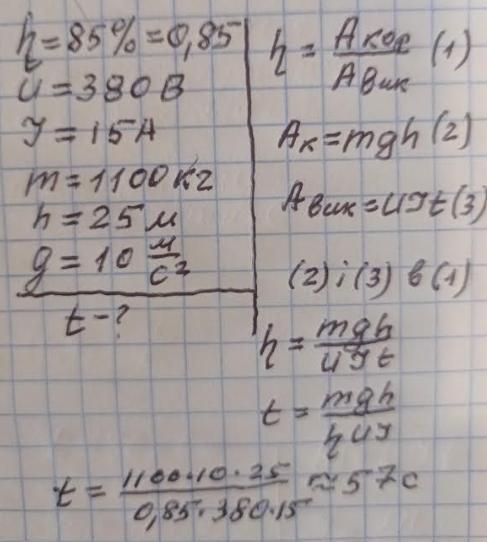 η = 85% = 0,85
U = 380 В
I = 15 А
m = 1100 кг
h = 25 м
g = 10 м/с²
t - ?
η = Aкор/Aвик (1)
Aк = mgh (2)
Aвик = UIt (3)
(2) і (3) в (1)
η = mgh/UIt
t = mgh/ηUI
t = 1100·10·25/0,85·380·15 ≈ 57 с